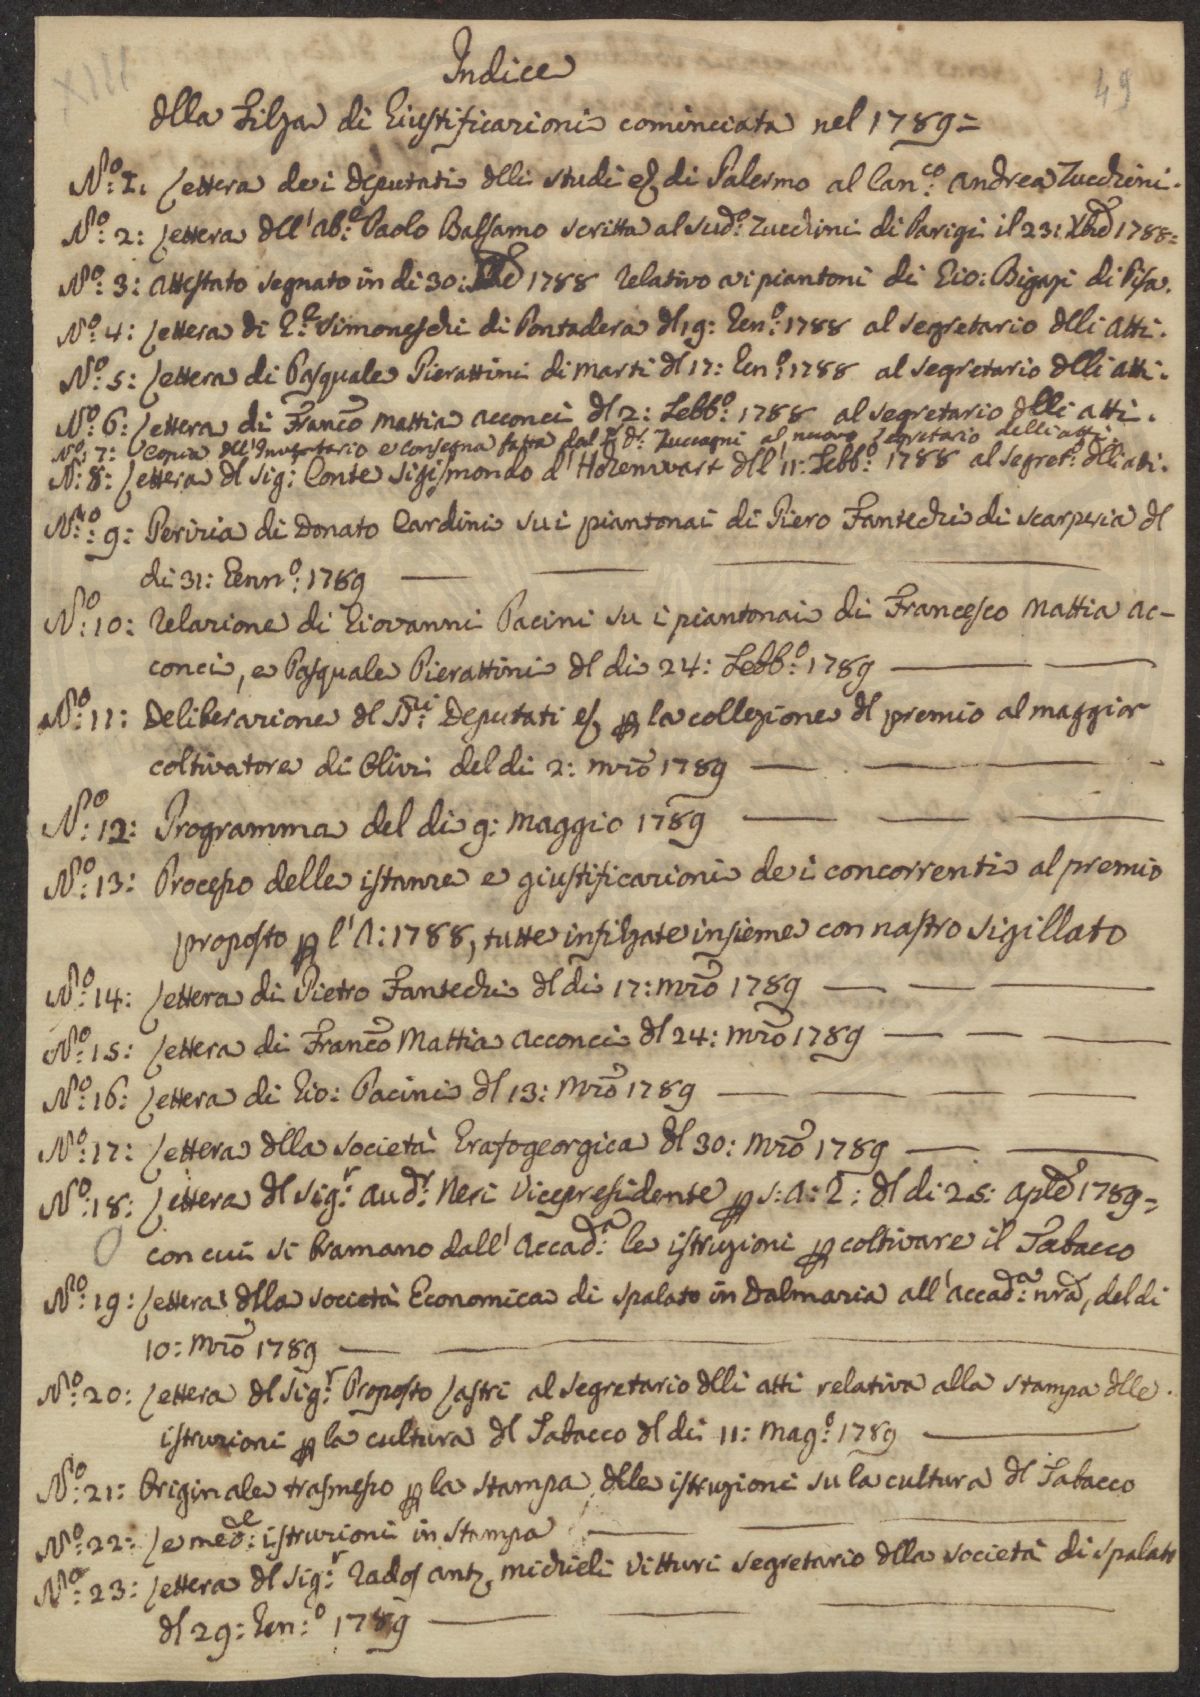 49
XIII
Indice
dlla Filza di Giustificazioni cominciata nel 1789=
N.o 1. Lettera dei Deputati dlli studi &c di Palermo al Can.co Andrea Zucchini.
N.o 2: Lettera dll'Ab.e Paolo Balsamo scritta al sud.o Zucchini di Parigi il 23: Xbre 1788=
N.o 3: Attestato segnato in di 30: Xbre 1788 relativo ai piantoni di Gio: Bigazi di Pisa.
N.o 4: Lettera di Simoneschi di Pontadera dl 19: Genn.o 1788 al segretario dlli Atti.
N.o 5: Lettera di Pasquale Pierattini di Marti dl 17: Gen.o 1788 al segretario dlli Atti.
N.o 6: Lettera di Franc.o Mattia Acconci dl 2: Febb.o 1788 al segretario dlli atti.
N.o 7: Copia dll'Inventario e consegna fatta dal Dr. Zuccagni al nuovo segretario delli atti.
N.o 8: Lettera dl Sig: Conte Sigismondo d'Hohenwart dll'11: Febb.o 1788 al segret.o dlli atti.
N.o 9: Perizia di Donato Cardini su i piantonai di Piero Fantechi di Scarperia dl
di 31: Genn.o 1789
N.o 10: Relazione di Giovanni Pacini su i piantonai di Francesco Mattia Ac-
conci, e Pasquale Pierattini dl di 24: Febb.o 1789
N.o 11: Deliberazione dl SS.ri Deputati &c p la collezione dl premio al maggior
coltivatore di Olivi del di 2: Mrzo 1789
N.o 12: Programma del di 9: Maggio 1789
N.o 13: Processo delle istanze e giustificazioni de i concorrenti al premio
proposto p l'A: 1788, tutte infilzate insieme con nastro sigillato
N.o 14: Lettera di Pietro Fantechi dl di 17: Mrzo 1789
N.o 15: Lettera di Franc.o Mattia Acconci dl 24: Mrzo 1789
N.o 16: Lettera di Gio: Pacini dl 13: Mrzo 1789
N.o 17: Lettera dlla Società Erafogeorgica dl 30: Mrzo 1789
N.o 18: Lettera dl Sig.r Aud.r Neri Vicepresidente p S: A: R: dl di 25: Aple 1789=
con cui si bramano dall'Accad.a le istruzioni p coltivare il Tabacco
N.o 19: Lettera dlla Società Economica di Spalato in Dalmazia all'Accad.a nra, del di
10: Mrzo 1789
N.o 20: Lettera dl Sig.r Proposto Lastri al segretario dlli atti relativa alla stampa dlle
istruzioni p la cultura dl Tabacco dl di 11: Mag.o 1789
N.o 21: Originale trasmesso p la stampa dlle istruzioni su la cultura dl Tabacco
N.o 22: Le med.e istruzioni in stampa
N.o 23: Lettera dl Sig.r Rados Ant. Michieli Vitturi segretario dlla Società di Spalato
dl 29: Gen.o 1789